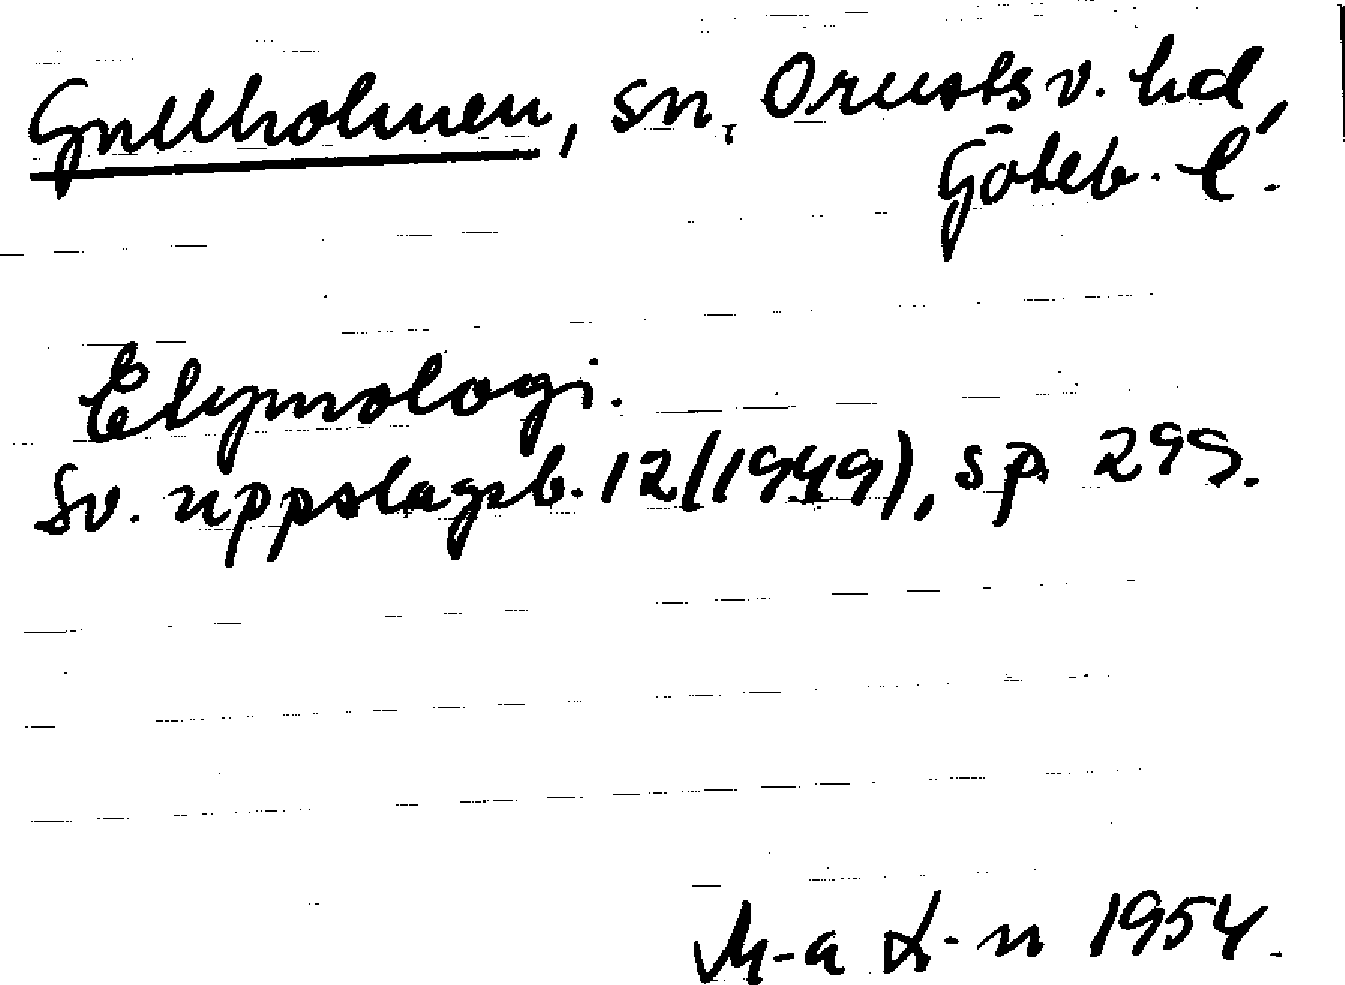 Gullholmen, sn, Orusts v. hd,
Göteb. l.
Etymologi.
Sv. uppslagsb. 12 (1949), sp. 299.
M-a L-n 1954.